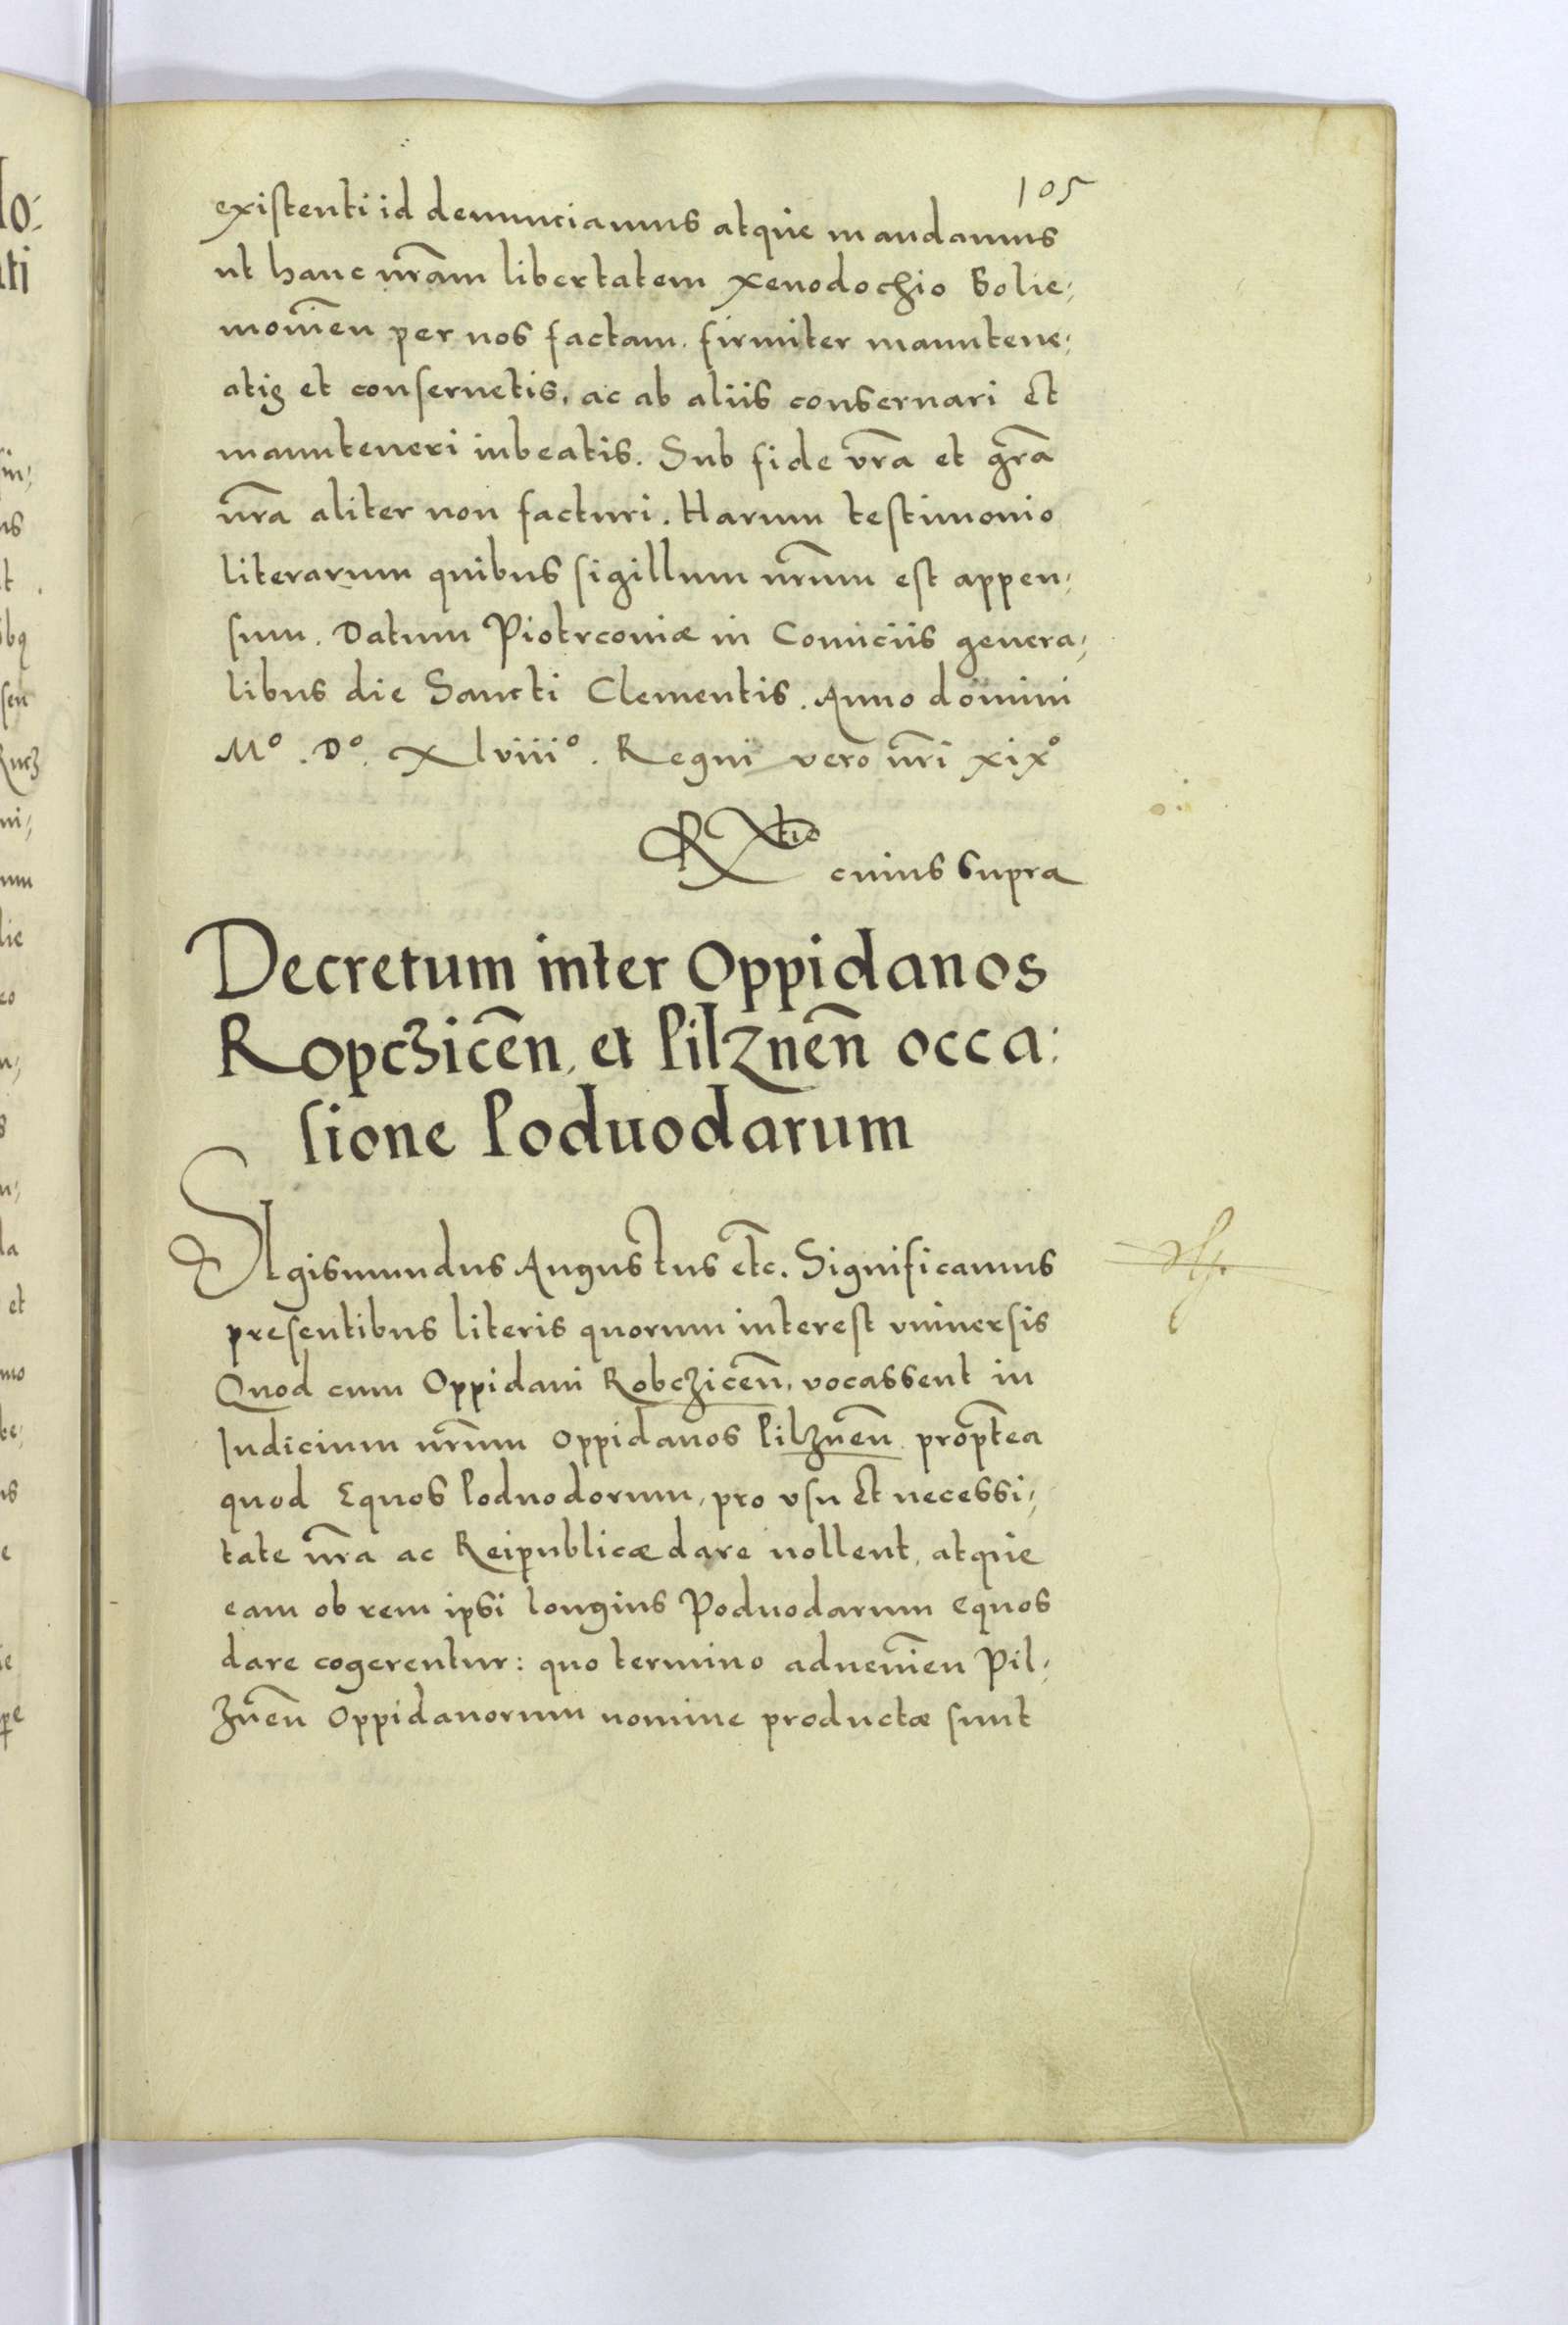 105
existenti id denunciamus atque mandamus
ut hanc nr̃am libertatem xenodochio Bolie;
monieñ per nos factam. firmiter manutene;
atis et conservetis, ac ab aliis conservari Et
manuteneri iubeatis. Sub fide vr̃a et gr̃a
nr̃a aliter non facturi. Harum testimonio
literarum quibus sigillum nr̃um est appen;
sum. Datum Piotrconiæ in Comiciis genera;
libus die Sancti Clementis. Anno domini
Mº. Dº. Xlviiiº. Regni vero nr̃i xixº
RXtio cuius supra
Decretum inter Oppidanos
Ropczicen̄, et Pilznen̄ occa:
sione Poduodarum
SIgismundus Augustus etc̃. Significamus
presentibus literis quorum interest vniuersis
Quod cum Oppidani Robczicen̄, vocassent in
Iudicium nr̃um oppidanos Pilznen̄. propt̃ea
quod Equos Poduodorum, pro vsu Et necessi;
tate nr̃a ac Reipublicæ dare nollent, atque
eam ob rem ipsi longius Poduodarum equos
dare cogerentur: quo termino adueniẽn Pil;
znen̄ Oppidanorum nomine productæ sunt